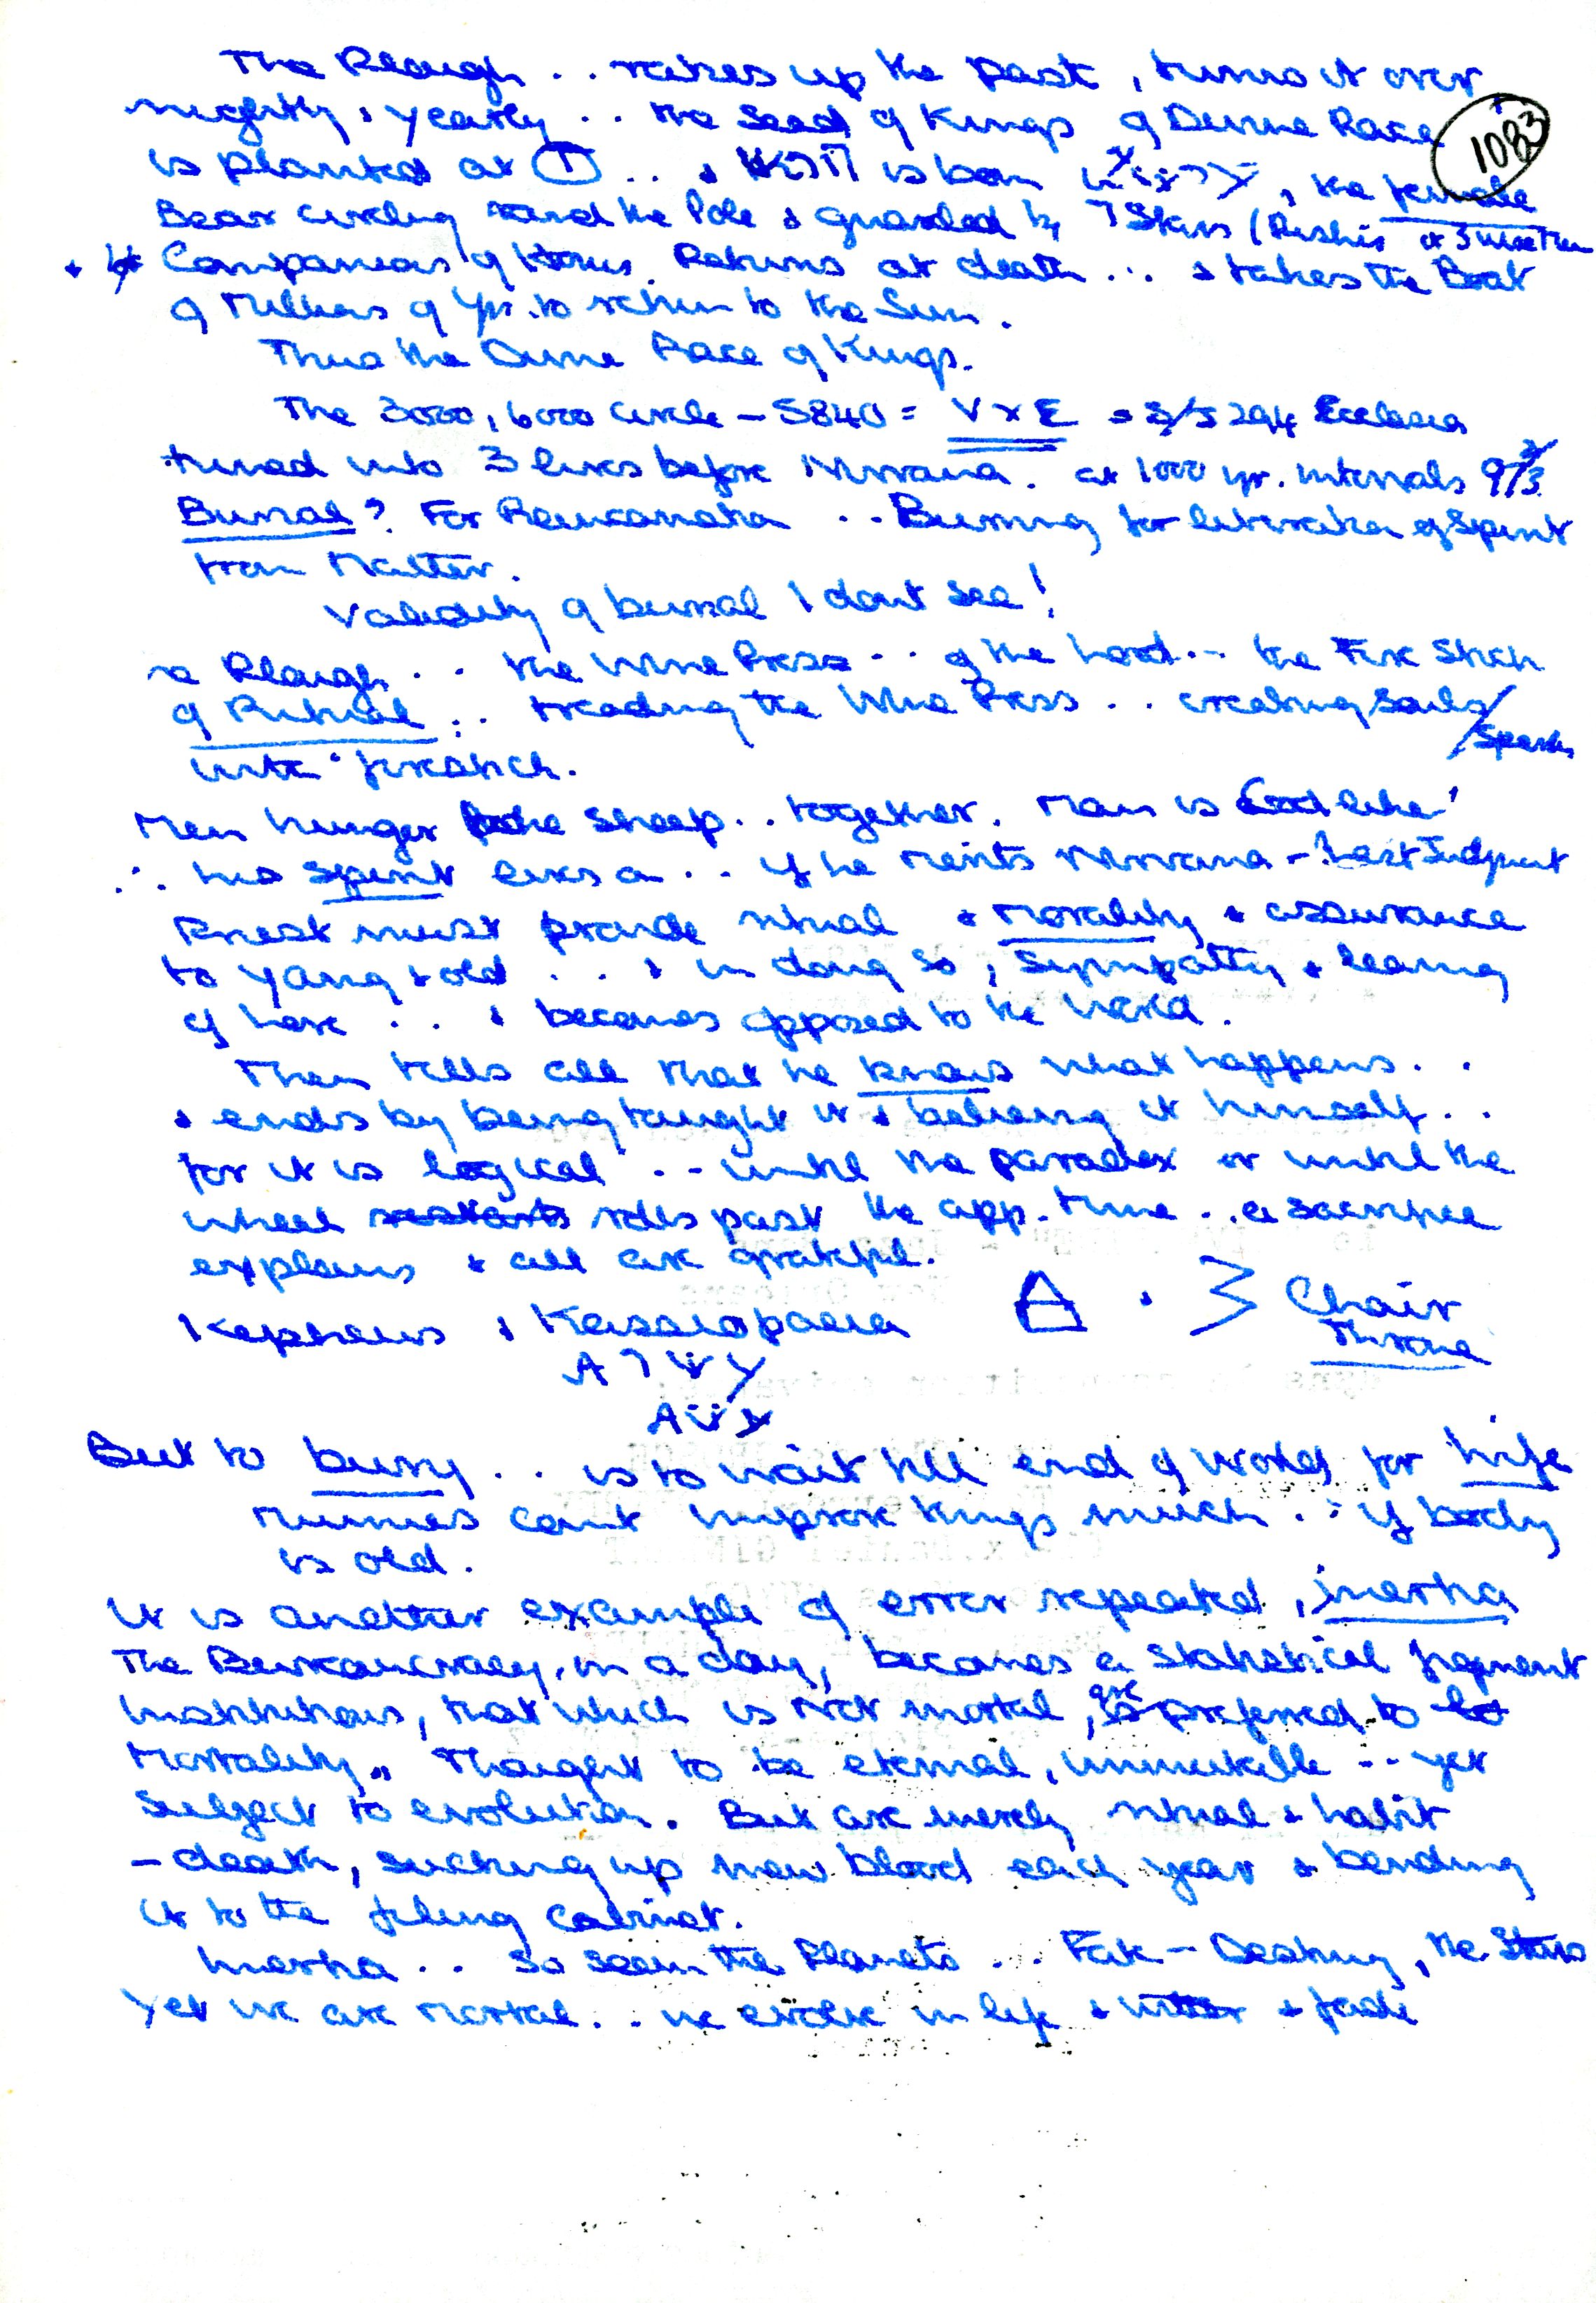 The Plough .. raises up the past, turns it over
nightly, yearly .. the Seed of Kings of Divine Race
1083
is planted at T .. + is born in , the female
Bear circling round the Pole + guarded by 7 Stars (Rishis or 3 wise Men
+ Companions of Horus. Returns at death ... + takes the Boat
of Millions of Yrs. to return to the Sun.
Thus the Divine Race of Kings.
The 3000, 6000 circle – 5840 = V x E = 294
turned into 3 lives before Nirvana. at 1000 yr. intervals
Burial? For Reincarnation .. Burning for liberation of Spirit
from Matter.
Validity of burial I dont see!
a Plough .. the Wine Press .. of the Lord .. the Fire Stick
of Ritual .. treading the Wine Press .. creating Souls/
/Sparks
with firestick.
Men hunger like sheep .. together. Man is God like!
∴ his spirit lives on .. if he merits Nirvana – Last Judgment
Priest must provide ritual + morality + assurance
to young + old .. + in doing so, sympathy + leaning
of love .. + becomes opposed to the World.
Then tells all that he knows what happens ..
+ ends by being taught it + believing it himself ..
for it is logical .. until the paradox or until the
wheel rolls past the app. time .. a sacrifice
explains + all are grateful.
Kepheus + Kassiopaeia Chair
Throne
But to bury .. is to wait till end of World for life
Mummies cant improve things much .. if body
is old.
It is another example of error repeated, inertia
The Bureaucracy, in a day, becomes a statistical figment
Institutions, that which is not mortal, are preferred to
Mortality. Thought to be eternal, immutable .. yet
Subject to evolution. But are merely ritual + habit
– death, sucking up new blood each year + bending
it to the filing cabinet.
Inertia .. So seem the Planets .. Fate – Destiny, the Stars
Yet we are mortal .. we evolve in life + wither + fade